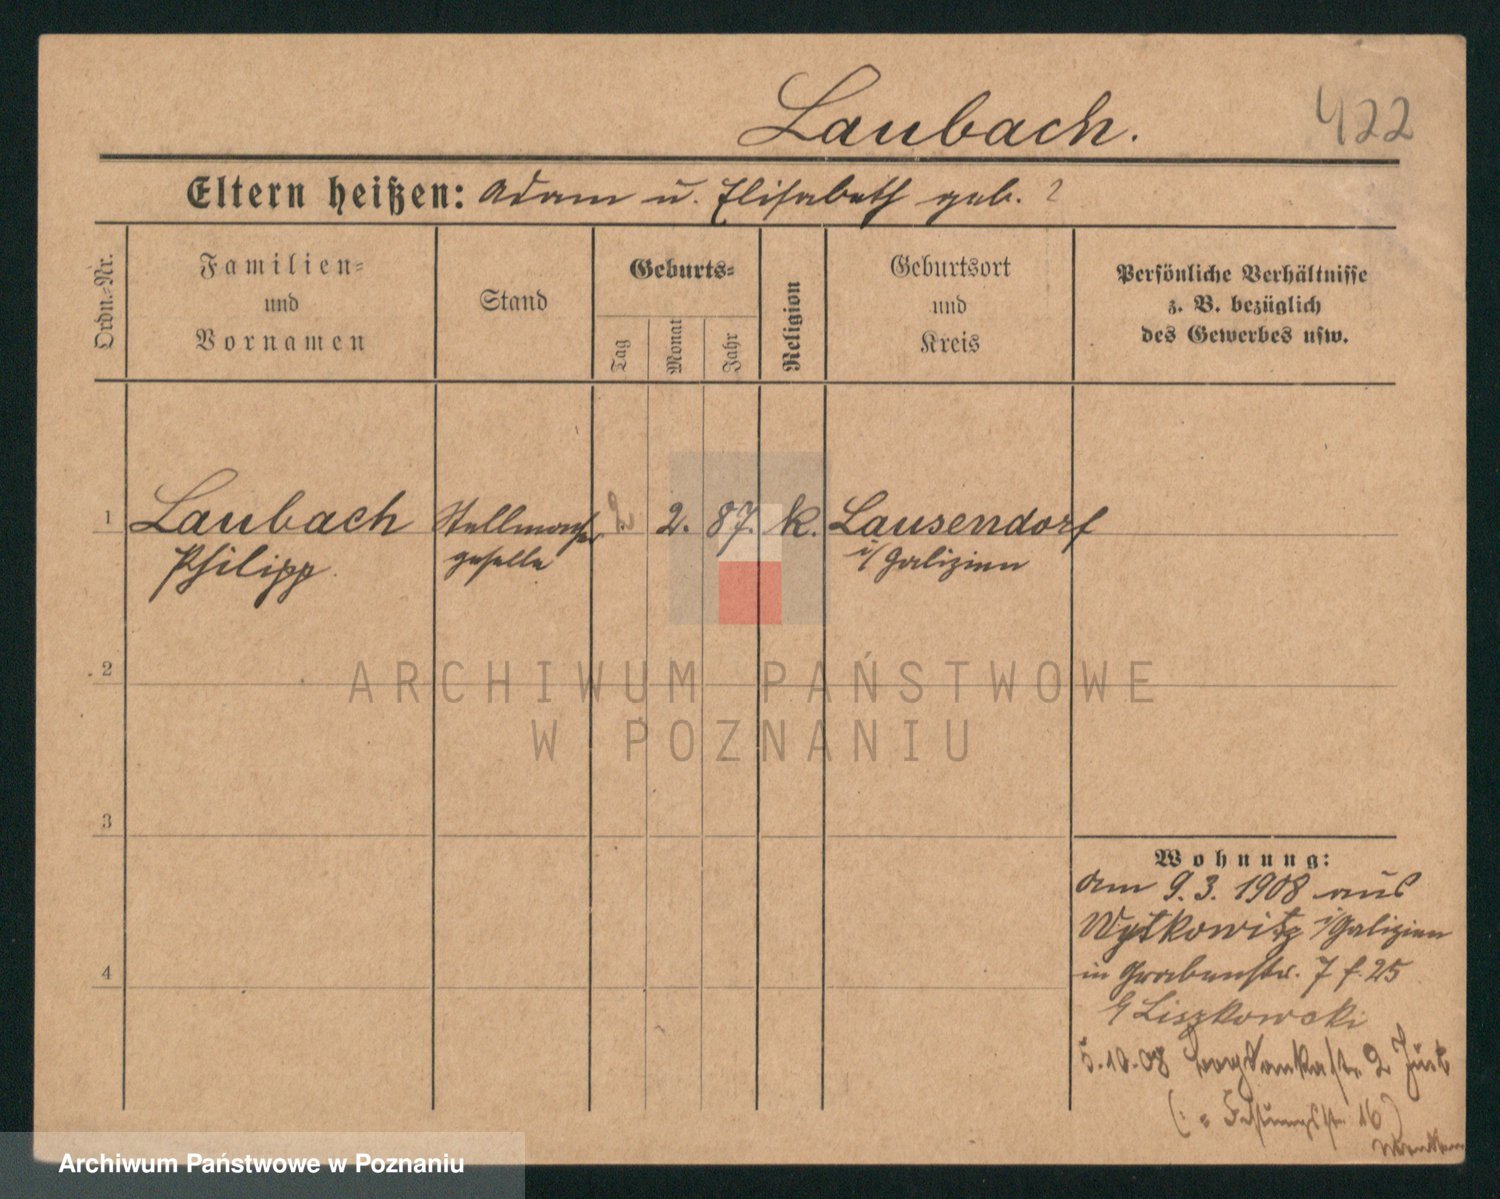 Laubach.
422
Eltern heißen: Adam u. Elisabeth geb. ?
Ordn.-Nr.
Familien-
und
Vornamen
Stand
Geburts-
Tag
Monat
Jahr
Religion
Geburtsort
und
Kreis
Persönliche Verhältnisse
z. B. bezüglich
des Gewerbes usw.
1 Laubach Stellmacher 2. 2. 87. k. Lausendorf
Philipp geselle i/Galizien
2
ARCHIWUM PAŃSTWOWE
W POZNANIU
3
4
Wohnung:
am 9.3.1908 aus
Wytkowitz i/Galizien
in Grabenstr. 7 f. 25
Liszkowski
5.10.08 2
16
Archiwum Państwowe w Poznaniu